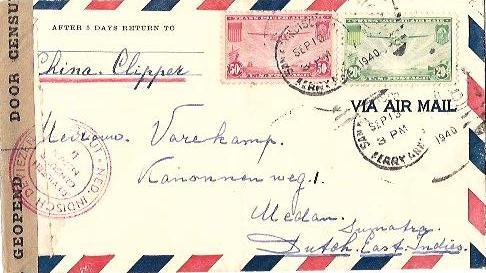 DOOR CENSU
GEOPEND
AFTER 5 DAYS RETURN TO
China Clipper
SEP 13
3 PM
1940
VIA AIR MAIL
SEP 13
3 PM
1940
SAN
FERRY ANNEX
NED. INDISCH
Mevrouw Varekamp.
Kanonnenweg 1.
Medan.
Sumatra
Dutch East-Indies.
50
20